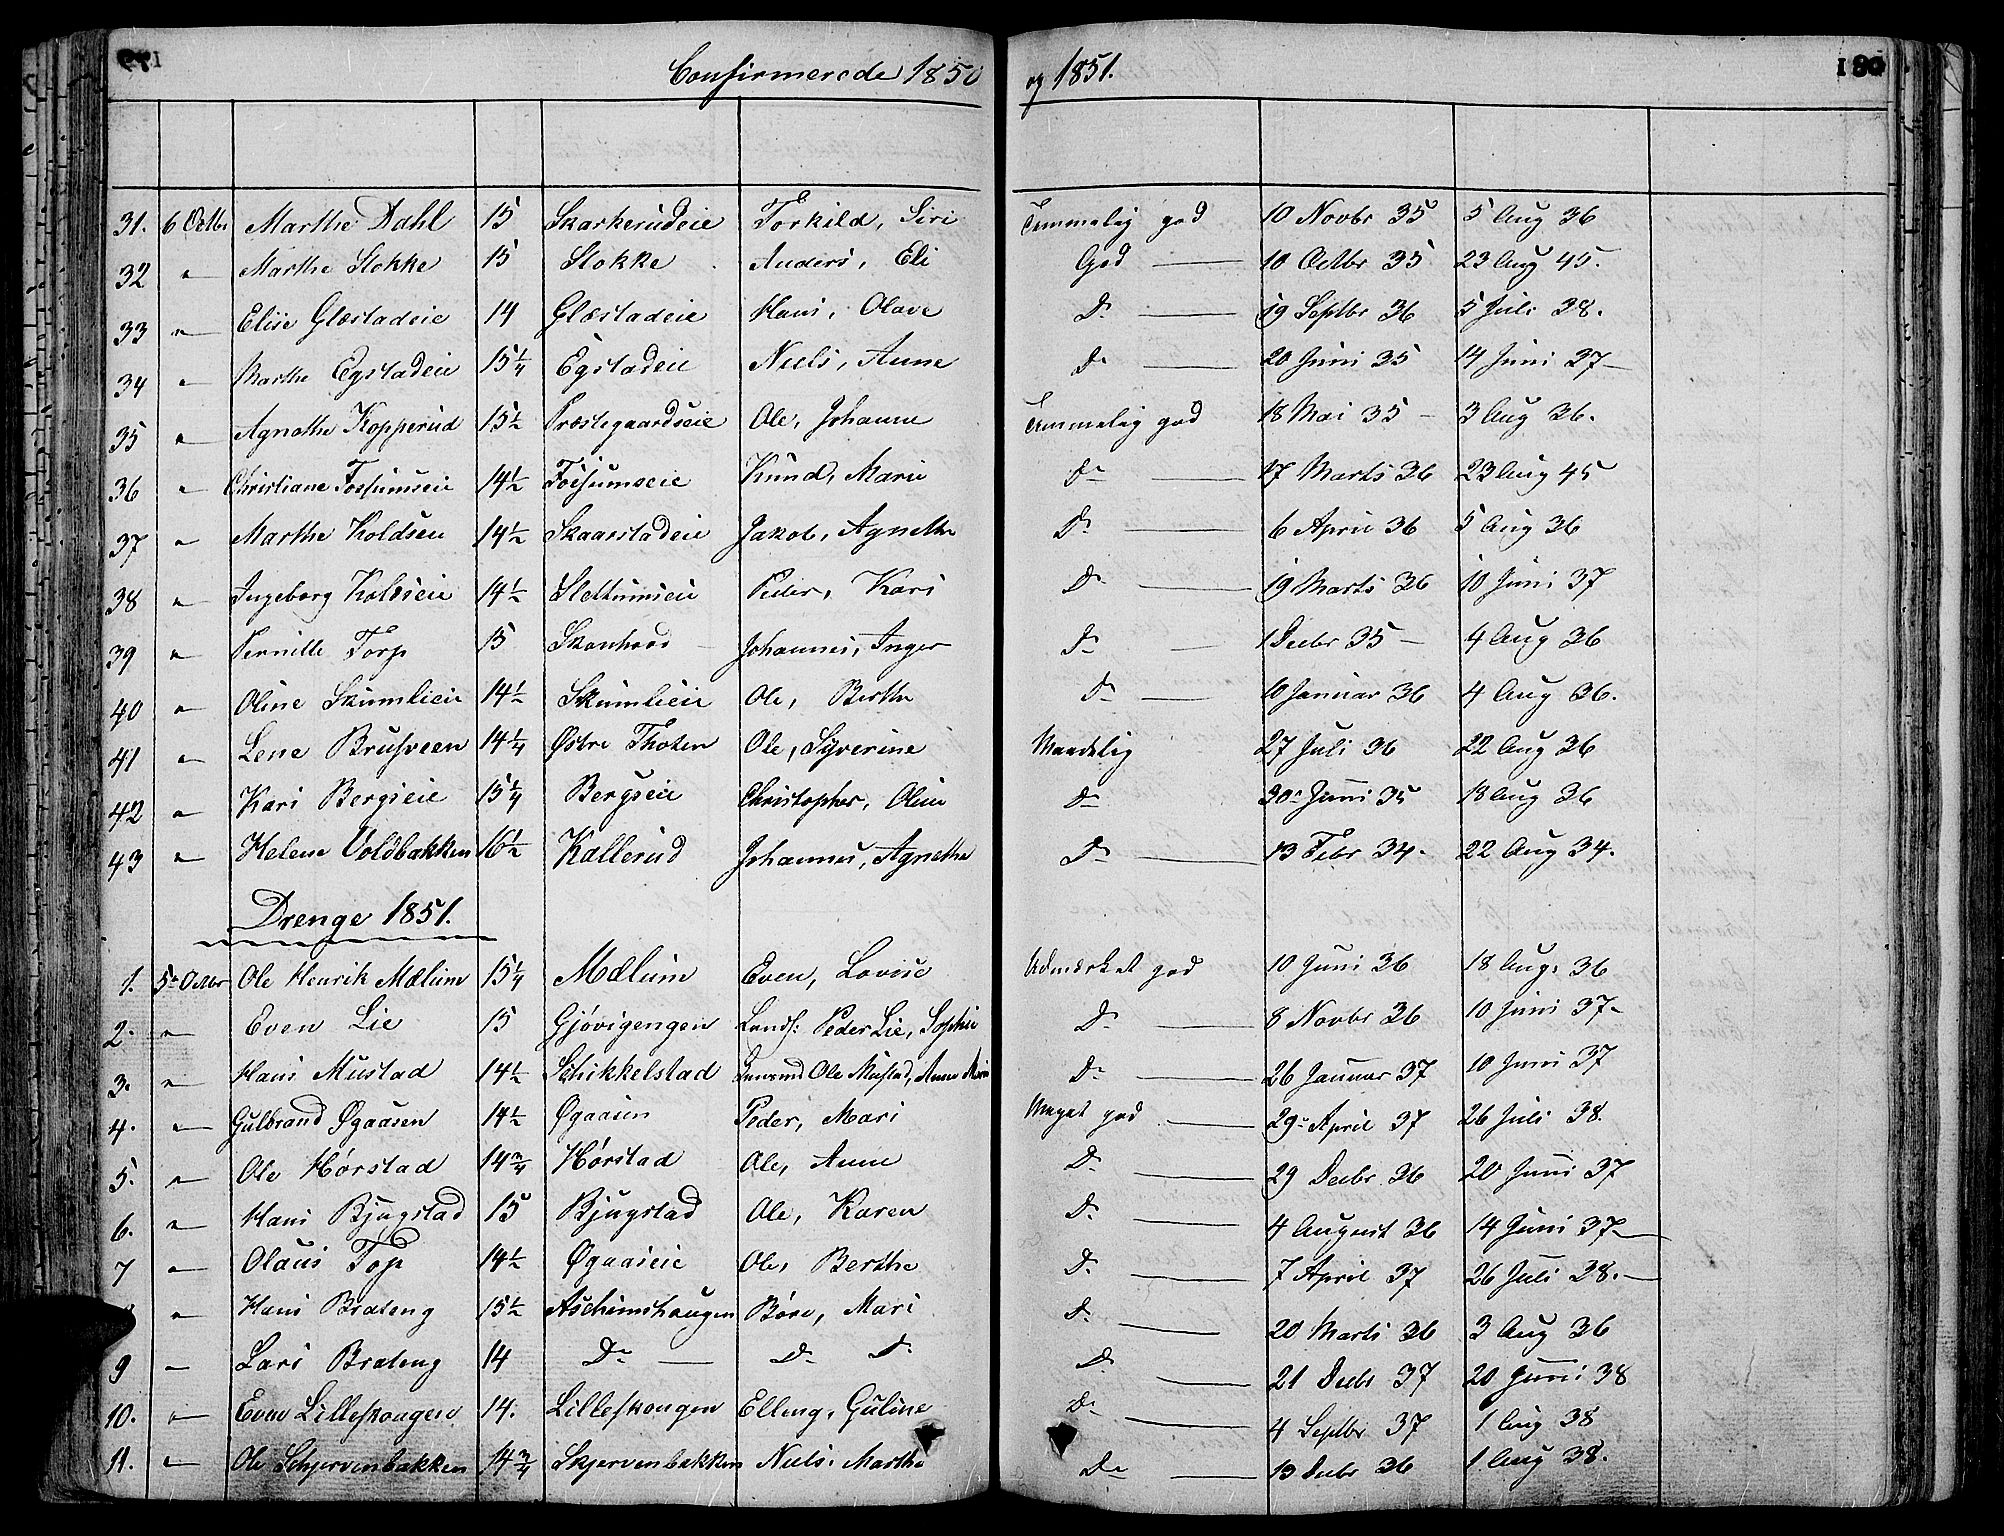 179
Confirmerede 1850 og 1851.
180
31. 6 Octbr Marthe Dahl 15 Skarkerudeie Torkild, Siri Temmelig god 10 Novbr 35 5 Aug 36
32 " Marthe Stokke 15 Stokke Anders, Eli God 10 Octbr 35 23 Aug 45.
33 " Elise Glæstadeie 14 Glæstadeie Hans, Olave Do 19 Septbr 36 5 Juli 38.
34 " Marthe Egstadeie 15 1/4 Egstadeie Niels, Anne Do 20 Juni 35 14 Juni 37
35 " Agnethe Kopperud 15 1/2 Præstegaardseie Ole, Johanne Temmelig god 18 Mai 35 3 Aug 36.
36 " Christiane Fossumseie 14 1/2 Fossumseie Knud, Marie Do 17 Marts 36 23 Aug 45
37 " Marthe Koldseie 14 1/2 Skaarstadeie Jakob, Agnethe Do 6 April 36 5 Aug 36
38 " Ingeborg Koldseie 14 1/2 Slettumseie Peder, Kari Do 19 Marts 36 10 Juni 37
39 " Pernille Torp 15 Skonhood Johannes, Inger Do 1 Decbr 35 4 Aug 36
40 " Oline Skumlieie 14 1/2 Skumlieie Ole, Berthe Do 10 Januar 36 4 Aug 36.
41 " Lene Brusveen 14 1/4 Østre Thoten Ole, Syverine Maadelig 27 Juli 36 22 Aug 36
42 " Kari Bergseie 15 1/4 Bergseie Christopher, Oline Do 30 Juni 35 18 Aug 36
43 " Helene Voldbakken 16 1/2 Kallerud Johannes, Agnethe Do 13 Febr 34. 22 Aug 34.
Drenge 1851.
1. 5 Octbr Ole Henrik Mælum 15 1/4 Mælum Even, Lovise Udmærket god 10 Juni 36 18 Aug. 36
2. " Even Lie 15 Gjøvigengen Landh: Peder Lie, Sophie Do 8 Novbr 36 10 Juni 37
3. " Hans Mustad 14 1/2 Schikkelstad Ole Mustad, Anne Marie Do 26 Januar 37 10 Juni 37
4. " Gulbrand Øgaasen 14 1/2 Øgaasen Peder, Mari Meget god 29 April 37 26 Juli 38.
5. " Ole Hørstad 14 3/4 Hørstad Ole, Anne Do 29 Decbr 36 20 Juni 37
6. " Hans Bjugstad 15 Bjugstad Ole, Karen Do 4 August 36 14 Juni 37
7 " Olaus Top 14 1/2 Øgaaseie Ole, Berthe Do 7 April 37 26 Juli 38.
" Hans Brateng 15 1/2 Aschimshaugen Børe, Mari Do 20 Marts 36 3 Aug 36
9 " Lars Brateng 14 Do Do Do Do 21 Decbr 37 20 Juni 38
10. " Even Lilleskongen 14. Lilleskongen Elling, Guline Do 4 Septbr 37 1 Aug 38
11. " Ole Schjervenbakken 14 3/4 Skjervenbakken Niels, Marthe Do 13 Decbr 36 1 Aug 38.